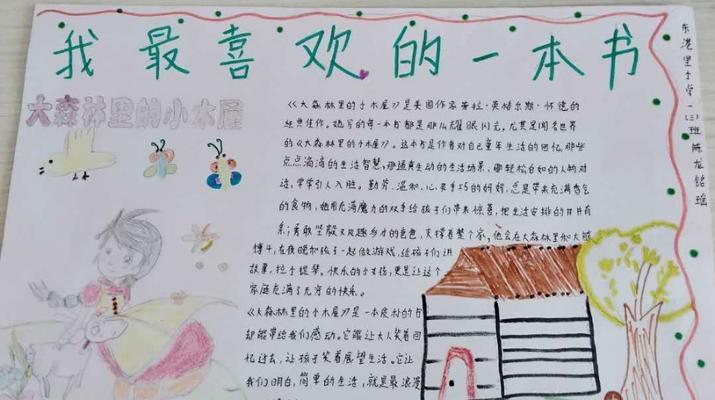 我最喜欢的一本书
大森林里的小木屋
《大森林里的小木屋》是美国作家劳拉·英格尔斯·怀德的
经典佳作。她写的每一本书都是那么耀眼闪光。尤其是闻名世界
的《大森林里的小木屋》。这本书是作者对自己童年生活的回忆,那些
点点滴滴的生活智慧,那逼真生动的生活场景,哪轻松自如的人物对
话,常常引人入胜。勤劳、温和、心灵手巧的妈妈,总是带来充满香气
的食物,她用充满魔力的双手给孩子们带来惊喜,把生活安排的井井有
条;勇敢坚毅又风趣多力的爸爸,支撑着整个家,他会在大森林里和大熊
博斗,在夜晚和孩子一起做游戏,给孩子们讲
故事,拉小提琴。快乐的小女孩,更是让这个
家庭充满了无穷的快乐。
《大森林里的小木屋》是一本皮村的书
却能带给我们感动。它能让大人笑着回
忆过去,让孩子笑着展望生活。它让
我们明白,简单的生活,就是最浪漫
东港里小学一(三)班 陈龙铭瑶